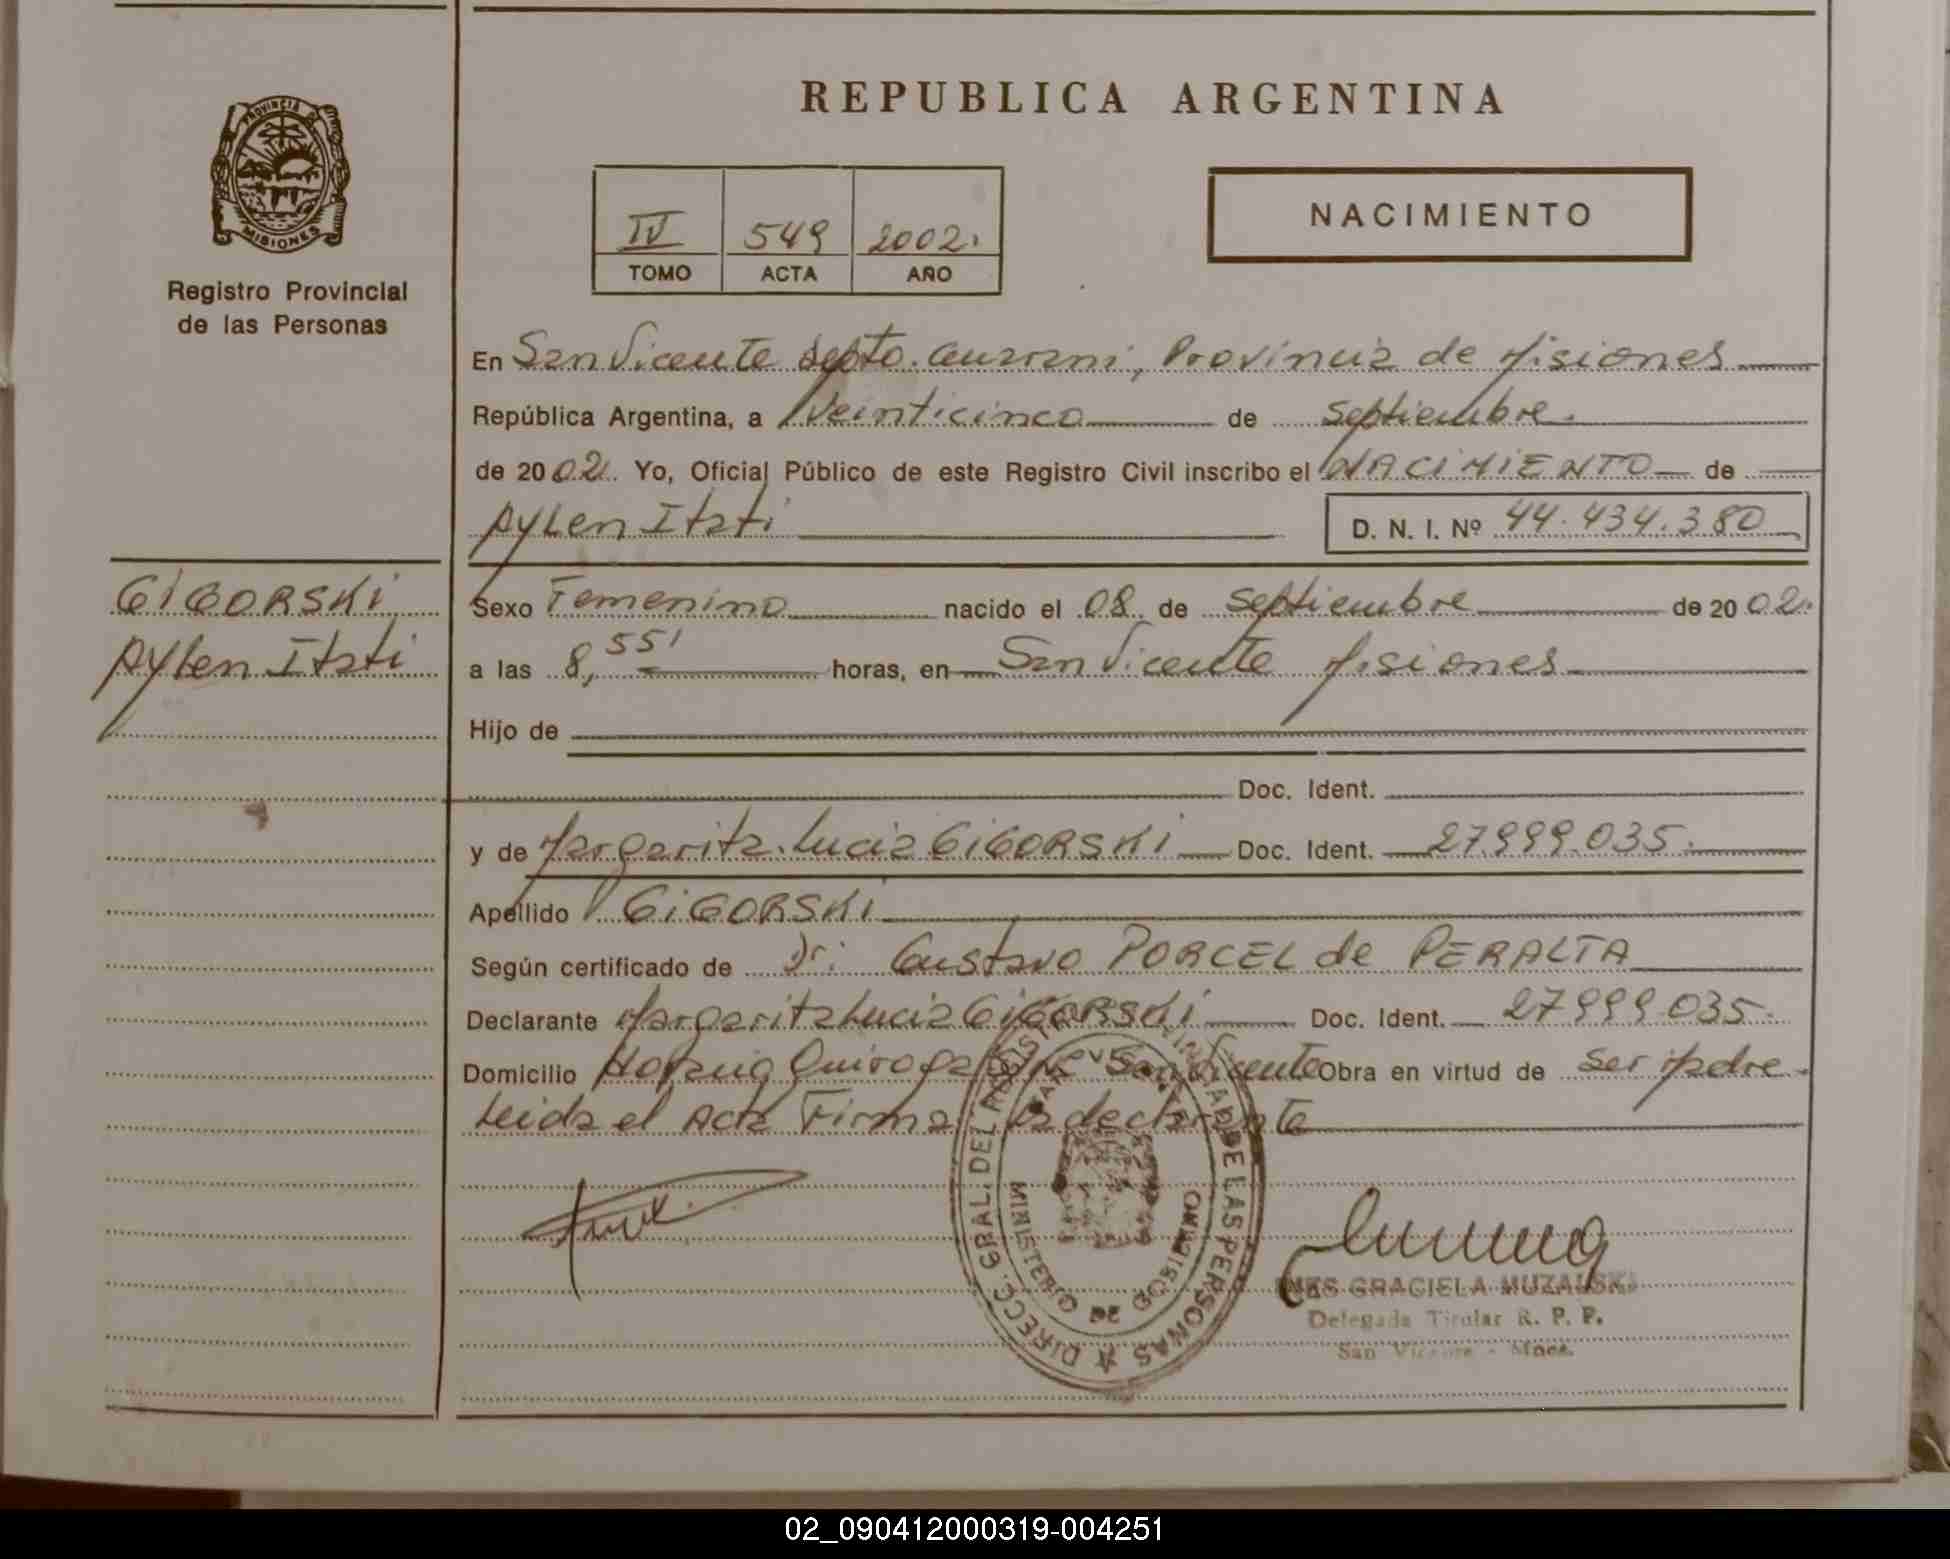 REPUBLICA ARGENTINA
PROVINCIA DE
MISIONES
Registro Provincial
de las Personas
IV 549 2002.
TOMO ACTA AÑO
NACIMIENTO
En San Vicente Depto. Guarani, Provincia de Misiones
República Argentina, a Veinticinco de Septiembre.
de 2002. Yo, Oficial Público de este Registro Civil inscribo el NACIMIENTO de
Aylen Itati D. N. I. Nº 44.434.380
GIGORSKI
Aylen Itati
Sexo Femenino nacido el 08 de Septiembre de 2002.
a las 8,55' horas, en San Vicente Misiones
Hijo de
Doc. Ident.
y de Margarita Lucia GIGORSKI Doc. Ident. 27.999.035.
Apellido GIGORSKI
Según certificado de Dr: Gustavo PORCEL de PERALTA
Declarante Margarita Lucia GIGORSKI Doc. Ident. 27.999.035.
Domicilio Horacio Quiroga San Vicente Obra en virtud de ser Madre.
Leida el Acta Firma la declarante
DIRECC. GRAL. DEL REGISTRO PROVINCIAL DE LAS PERSONAS
MINISTERIO DE GOBIERNO
INES GRACIELA MUZALSKI
Delegada Titular R. P. P.
San Vicente - Mnes.
02_090412000319-004251